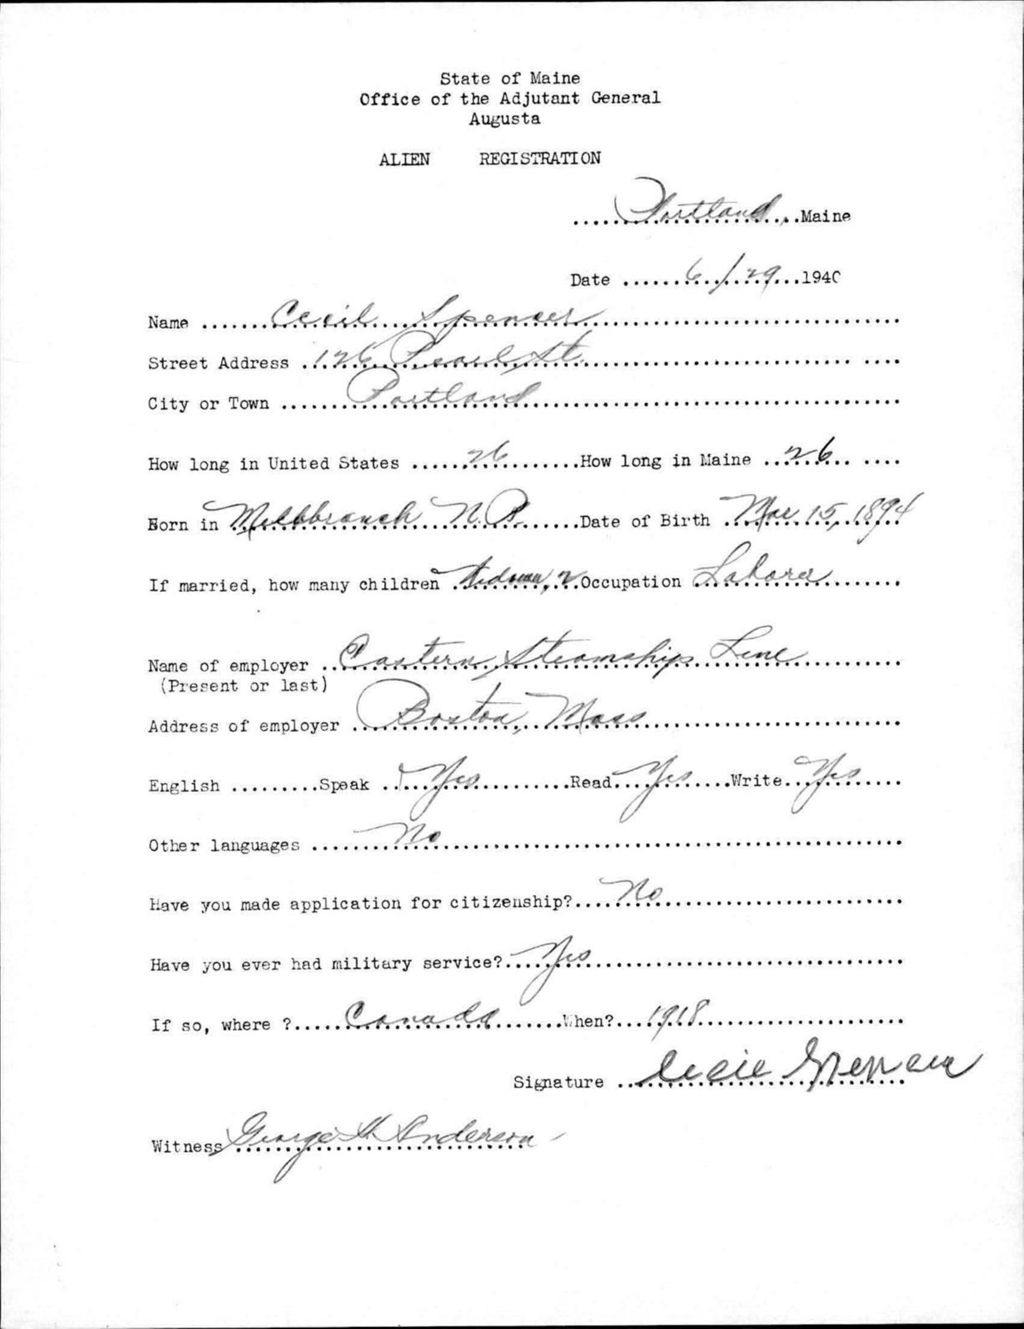 State of Maine
Office of the Adjutant General
Augusta
ALIEN REGISTRATION
Portland, Maine
Date 6/29 1940
Name Cecil Spencer
Street Address 126 Pearl St.
City or Town Portland
How long in United States 26 How long in Maine 26
Born in Millbranch N.B. Date of Birth Mar 15, 1894
If married, how many children Widower, 2 Occupation Laborer
Name of employer Eastern Steamship Line
(Present or last)
Address of employer Boston, Mass
English Speak Yes Read Yes Write Yes
Other languages No
Have you made application for citizenship? No
Have you ever had military service? Yes
If so, where ? Canada When? 1918
Signature Cecil Spencer
Witness George H. Anderson